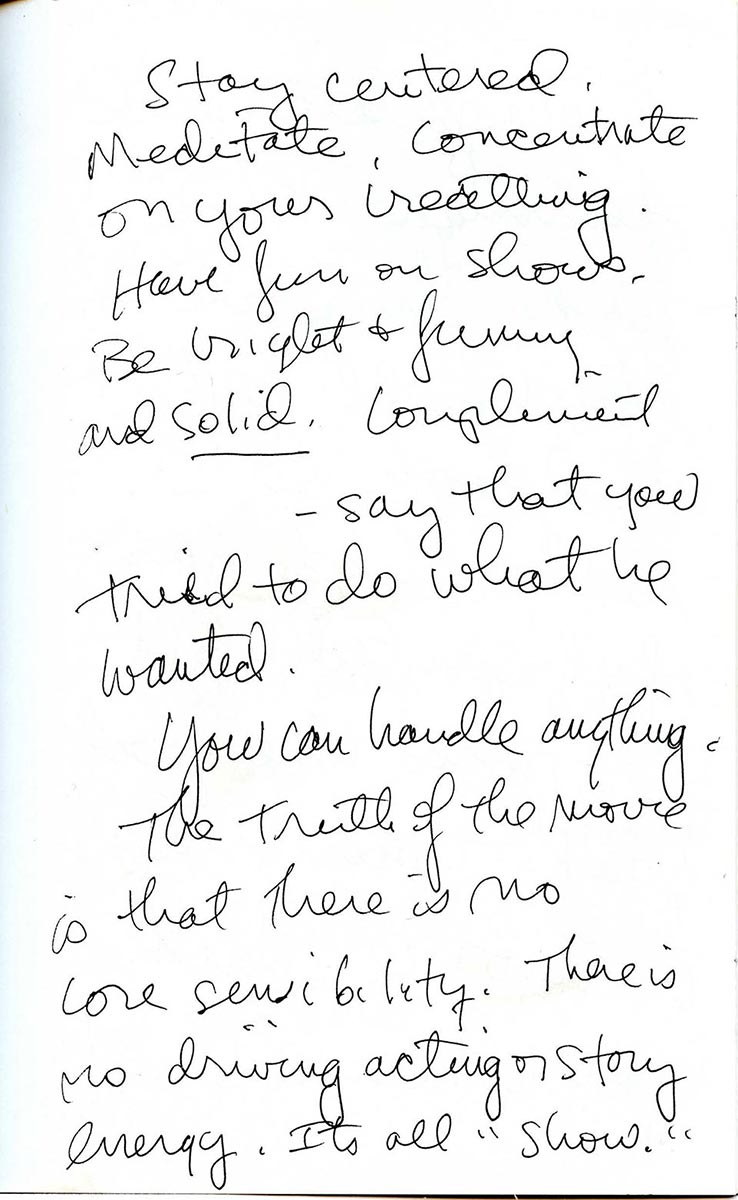 Stay centered.
Meditate, Concentrate
on your breathing.
Have fun on shows.
Be bright & funny
and solid. Complement
- say that you
tried to do what he
wanted.
You can handle anything.
The truth of the movie
is that there is no
core sensibility. There is
no driving acting or story
energy. Its all "show."